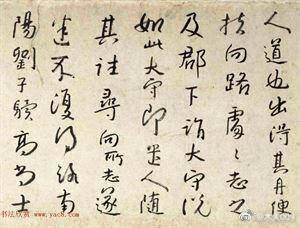 人道也出得其舟便
扶向路處々志之
及郡下詣太守說
如此太守即遣人隨
其往尋向所志遂
迷不復得路南
陽劉子驥高尚士
书法欣赏 www.yac8.com